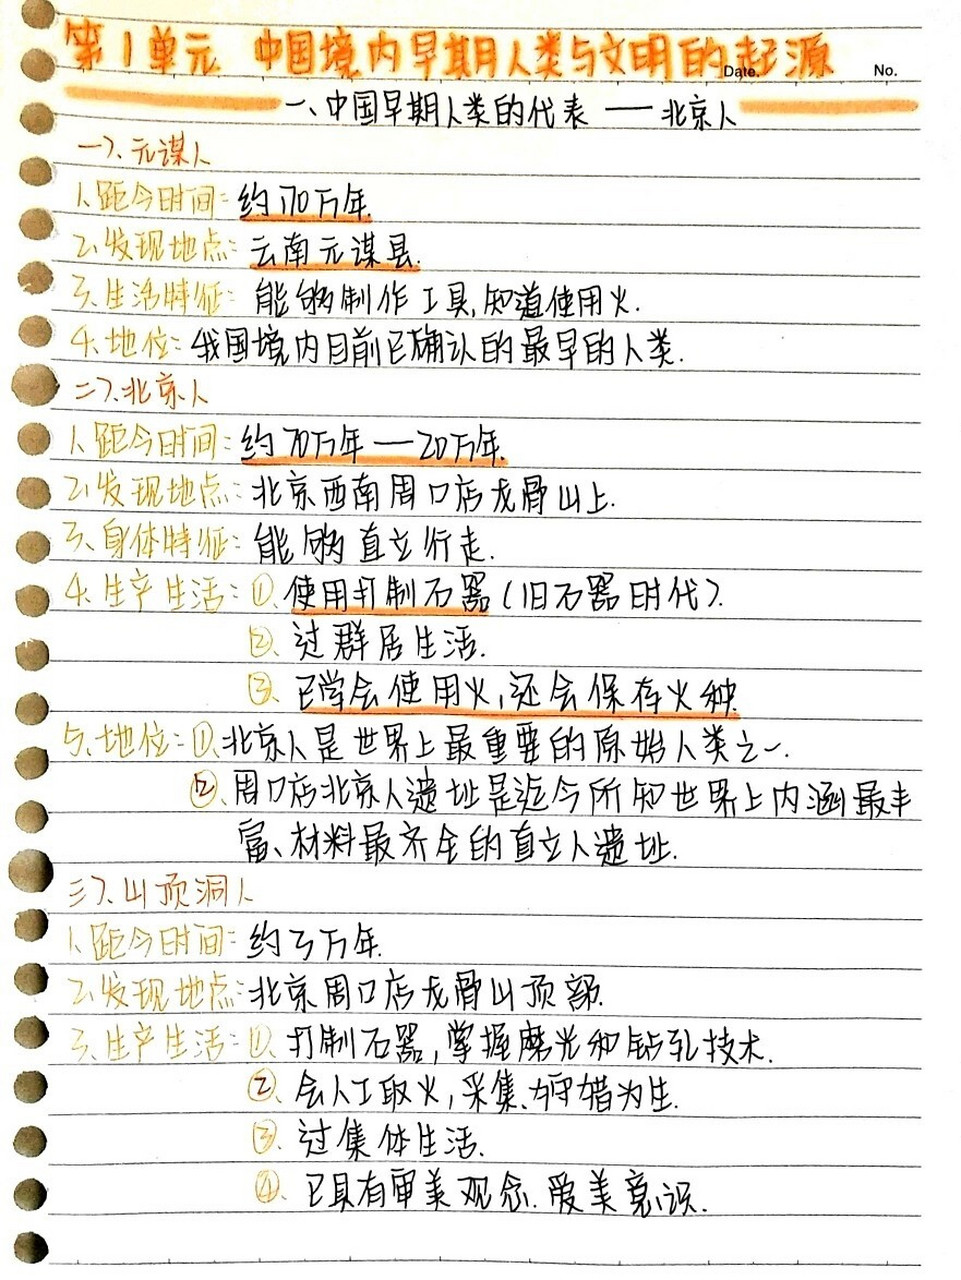 第1单元 中国境内早期人类与文明的起源
Date. No.
一、中国早期人类的代表 —— 北京人
一>、元谋人
1、距今时间:约170万年.
2、发现地点:云南元谋县.
3、生活特征:能够制作工具,知道使用火.
4、地位:我国境内目前已确认的最早的人类.
二>、北京人
1、距今时间:约70万年—20万年.
2、发现地点:北京西南周口店龙骨山上.
3、身体特征:能够直立行走.
4、生产生活:①、使用打制石器(旧石器时代).
②、过群居生活.
③、已学会使用火,还会保存火种.
5、地位:①、北京人是世界上最重要的原始人类之一.
②、周口店北京人遗址是迄今所知世界上内涵最丰
富、材料最齐全的直立人遗址.
三>、山顶洞人
1、距今时间:约3万年.
2、发现地点:北京周口店龙骨山顶部.
3、生产生活:①、打制石器,掌握磨光和钻孔技术.
②、会人工取火,采集、狩猎为生.
③、过集体生活.
④、已具有审美观念.爱美意识.